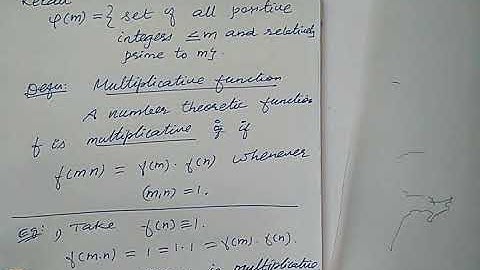 Recall
φ(m) = { set of all positive
integers ≤ m and relatively
prime to m}.
Defn: Multiplicative function
A number theoretic function
f is multiplicative if
f(mn) = f(m) · f(n) whenever
(m,n) = 1.
Eg: 1) Take f(n) ≡ 1.
f(m.n) = 1 = 1·1 = f(m). f(n).
is multiplicative